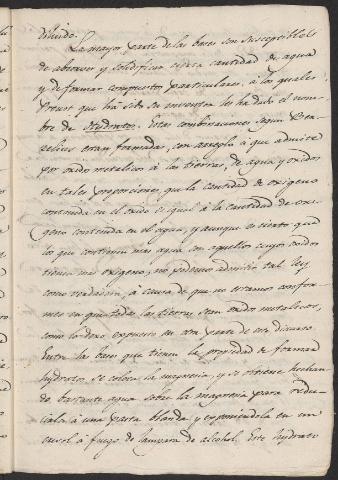 diluido.
La mayor parte de las bases son susceptibles
de absorver y solidificar cierta cantidad de agua
y de formar compuestos particulares, á los quales
Proust que ha sido su inventor les ha dado el nom-
bre de Hydratos. Estas combinaciones segun Ber-
zelius eran formadas, con arreglo á que admite
por oxido metalico á las tierras, de agua y oxidos
en tales proporciones que la cantidad de oxigeno
contenida en el oxido es igual á la cantidad de oxi-
geno contenida en el agua, y aunque es cierto que
los que contienen mas agua son aquellos cuyos oxidos
tienen mas oxigeno, no podemos admitir tal ley
como verdadera, á causa de que no estamos confor-
mes en que todas las tierras sean oxidos metalicos,
como lo dexo expuesto en otra parte de este discurso.
Entre las bases que tienen la propiedad de formar
hydratos se coloca la magnesia, y se obtiene echan-
do bastante agua sobre la magnesia para redu-
cirla á una pasta blanda y exponiendola en un
crisol á fuego de lampara de alcohol. Este hydrato